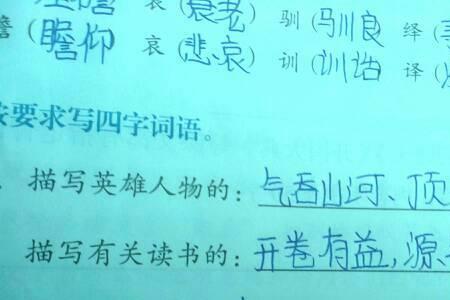 瞻(瞻仰 哀(悲哀) 训(训诰 译(
衰(衰老) 驯(驯良 绎(
按要求写四字词语。
描写英雄人物的:气吞山河、顶
描写有关读书的:开卷有益,源